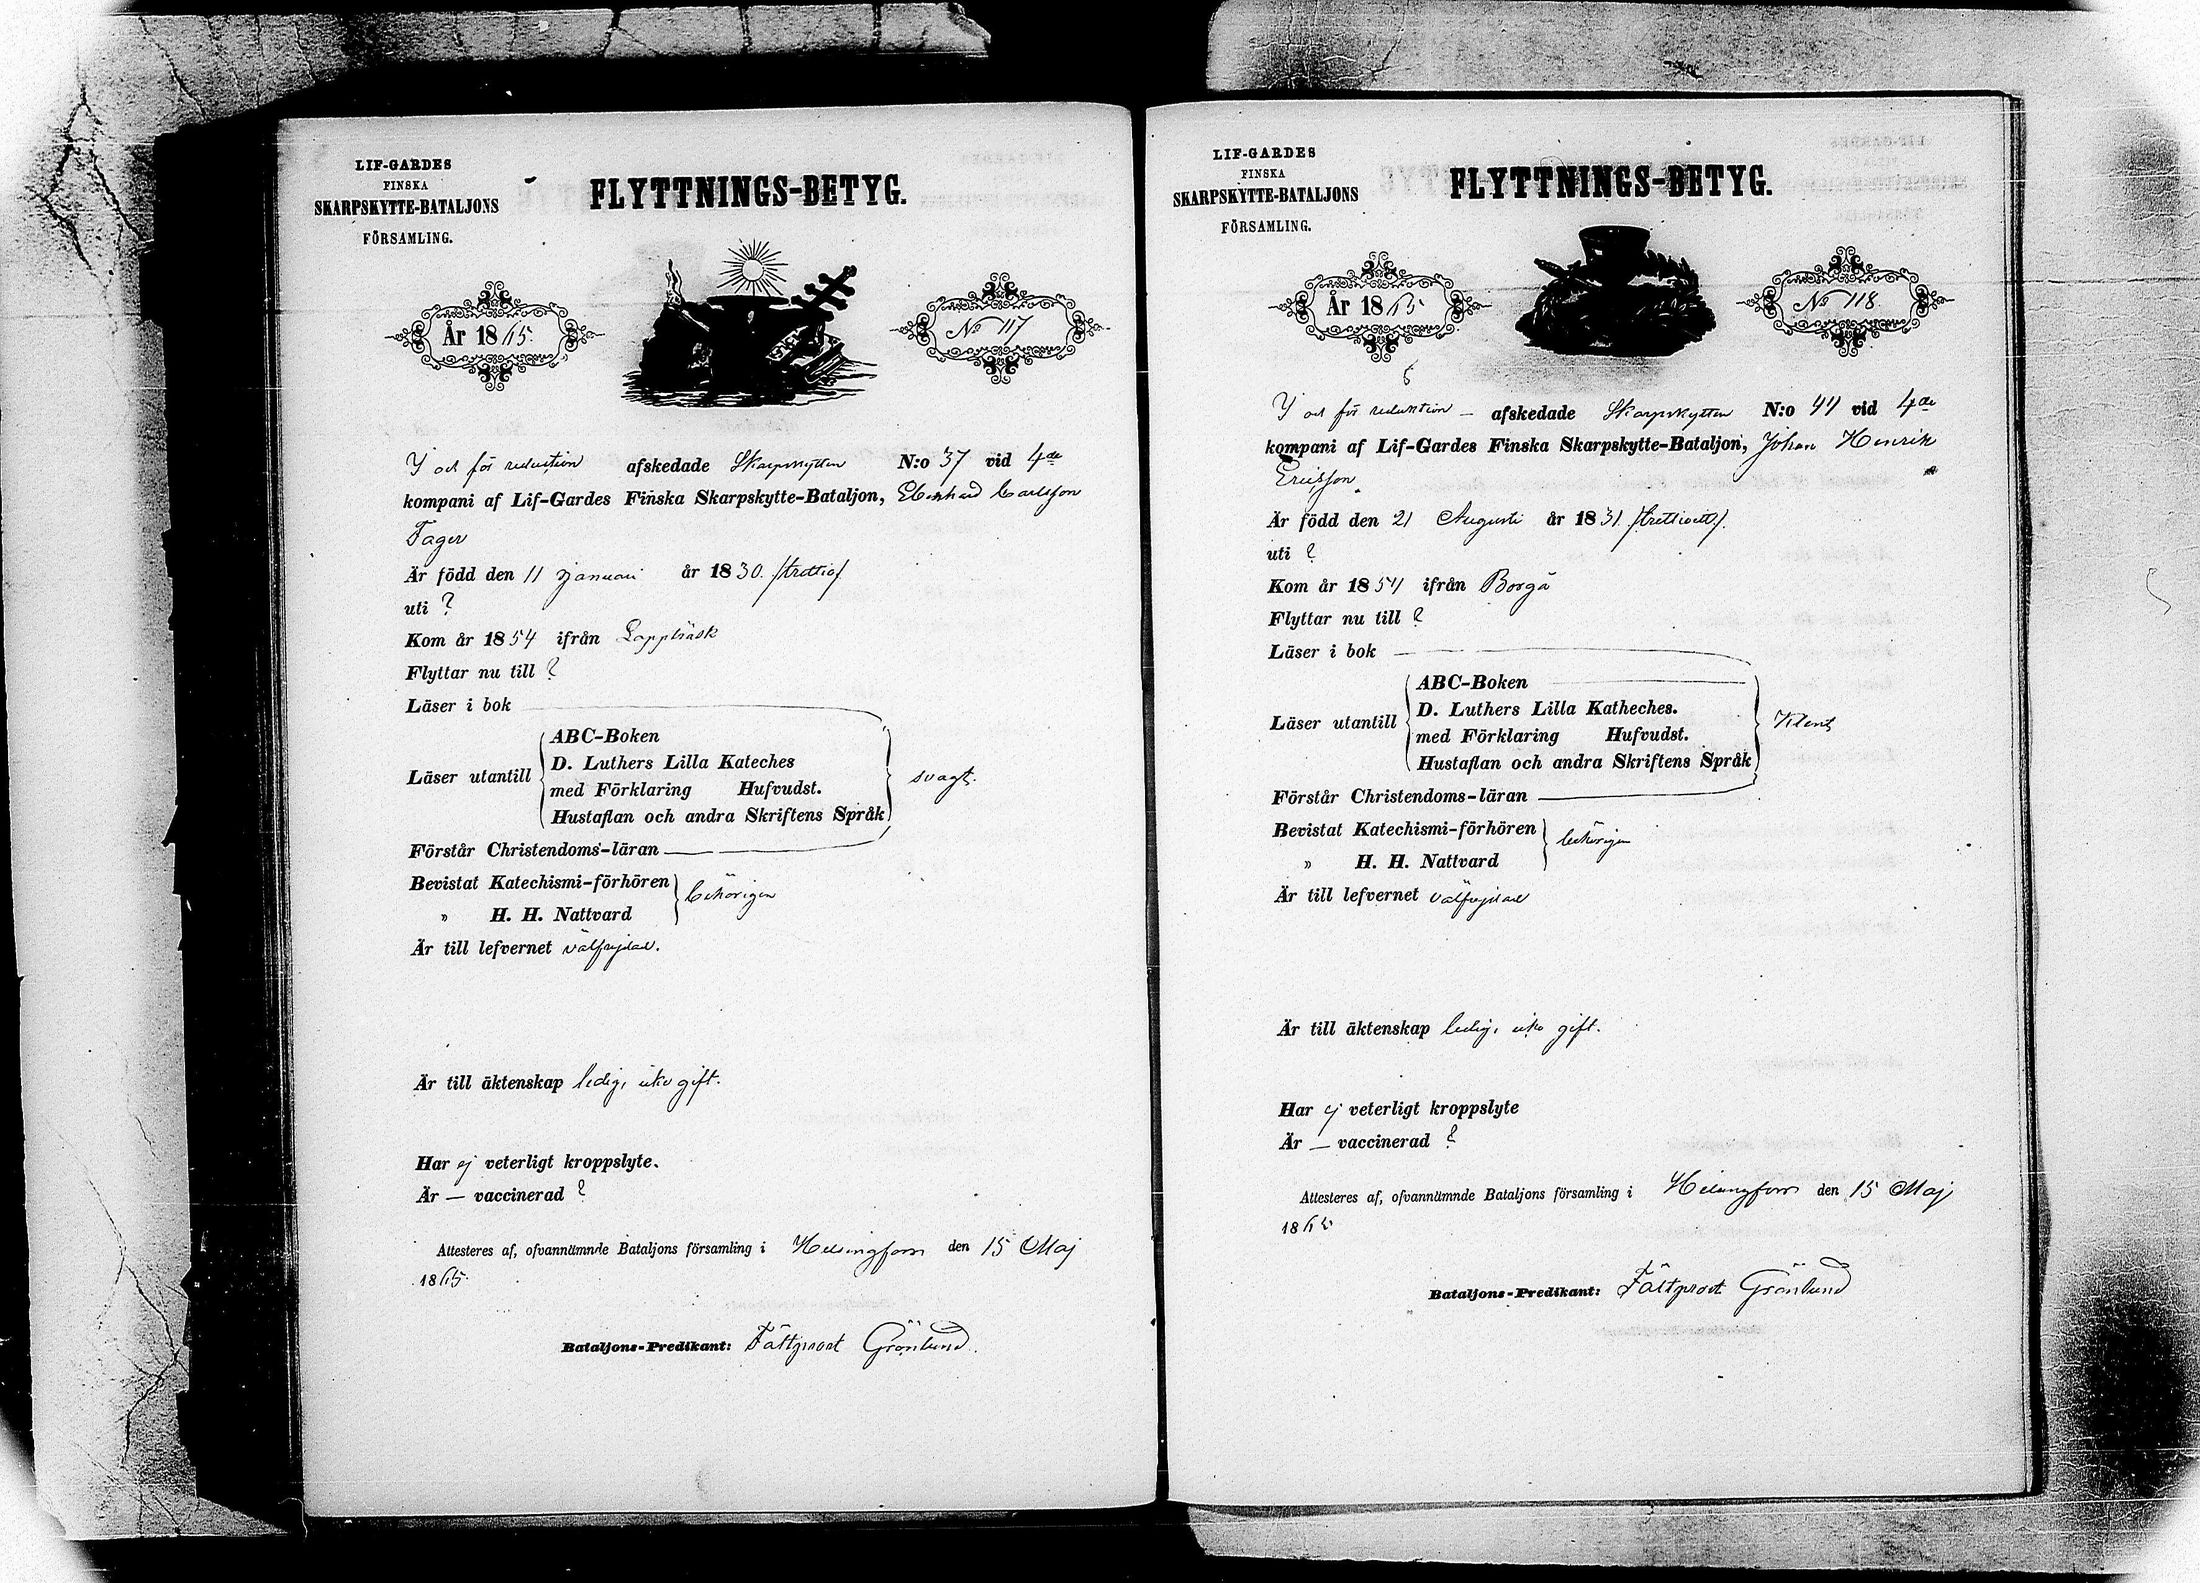 LIF-GARDES
FINSKA
SKARPSKYTTE-BATALJONS
FÖRSAMLING.
FLYTTNINGS-BETYG.
År 1865.
No 117
I och för reduction afskedade Skarpskytten N:o 37 vid 4de
kompani af Lif-Gardes Finska Skarpskytte-Bataljon, Ebenhard Carlsson
Fager
Är född den 11 Januari år 1830. /trettio/
uti ?
Kom år 1854 ifrån Lappträsk
Flyttar nu till ?
Läser i bok
ABC-Boken
D. Luthers Lilla Kateches
Läser utantill med Förklaring Hufvudst. svagt.
Hustaflan och andra Skriftens Språk
Förstår Christendoms-läran
Bevistat Katechismi-förhören behörigen
„ H. H. Nattvard
Är till lefvernet välfrejdad.
Är till äktenskap ledig, icke gift.
Har ej veterligt kroppslyte.
Är — vaccinerad ?
Attesteres af, ofvannämnde Bataljons församling i Helsingfors den 15 Maj
1865.
Bataljons-Predikant: Fältprost Grönlund.
LIF-GARDES
FINSKA
SKARPSKYTTE-BATALJONS
FÖRSAMLING.
FLYTTNINGS-BETYG.
År 1865
No 118
I och för reduktion – afskedade Skarpskytten N:o 44 vid 4de
kompani af Lif-Gardes Finska Skarpskytte-Bataljon, Johan Henrik
Ericsson
Är född den 21 Augusti år 1831. /trettioett/.
uti ?
Kom år 1854 ifrån Borgå
Flyttar nu till ?
Läser i bok
ABC-Boken
D. Luthers Lilla Katheches.
Läser utantill med Förklaring Hufvudst. Klent
Hustaflan och andra Skriftens Språk
Förstår Christendoms-läran
Bevistat Katechismi-förhören behörigen
„ H. H. Nattvard
Är till lefvernet välfrejdad
Är till äktenskap ledig, icke gift.
Har ej veterligt kroppslyte
Är — vaccinerad ?
Attesteres af, ofvannämnde Bataljons församling i Helsingfors den 15 Maj
1865
Bataljons-Predikant: Fältprost Grönlund